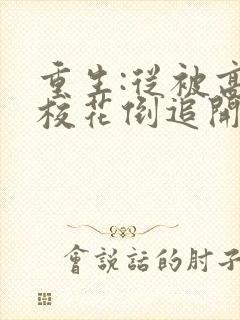 重生:從被高
校花倒追開
會說話的肘子